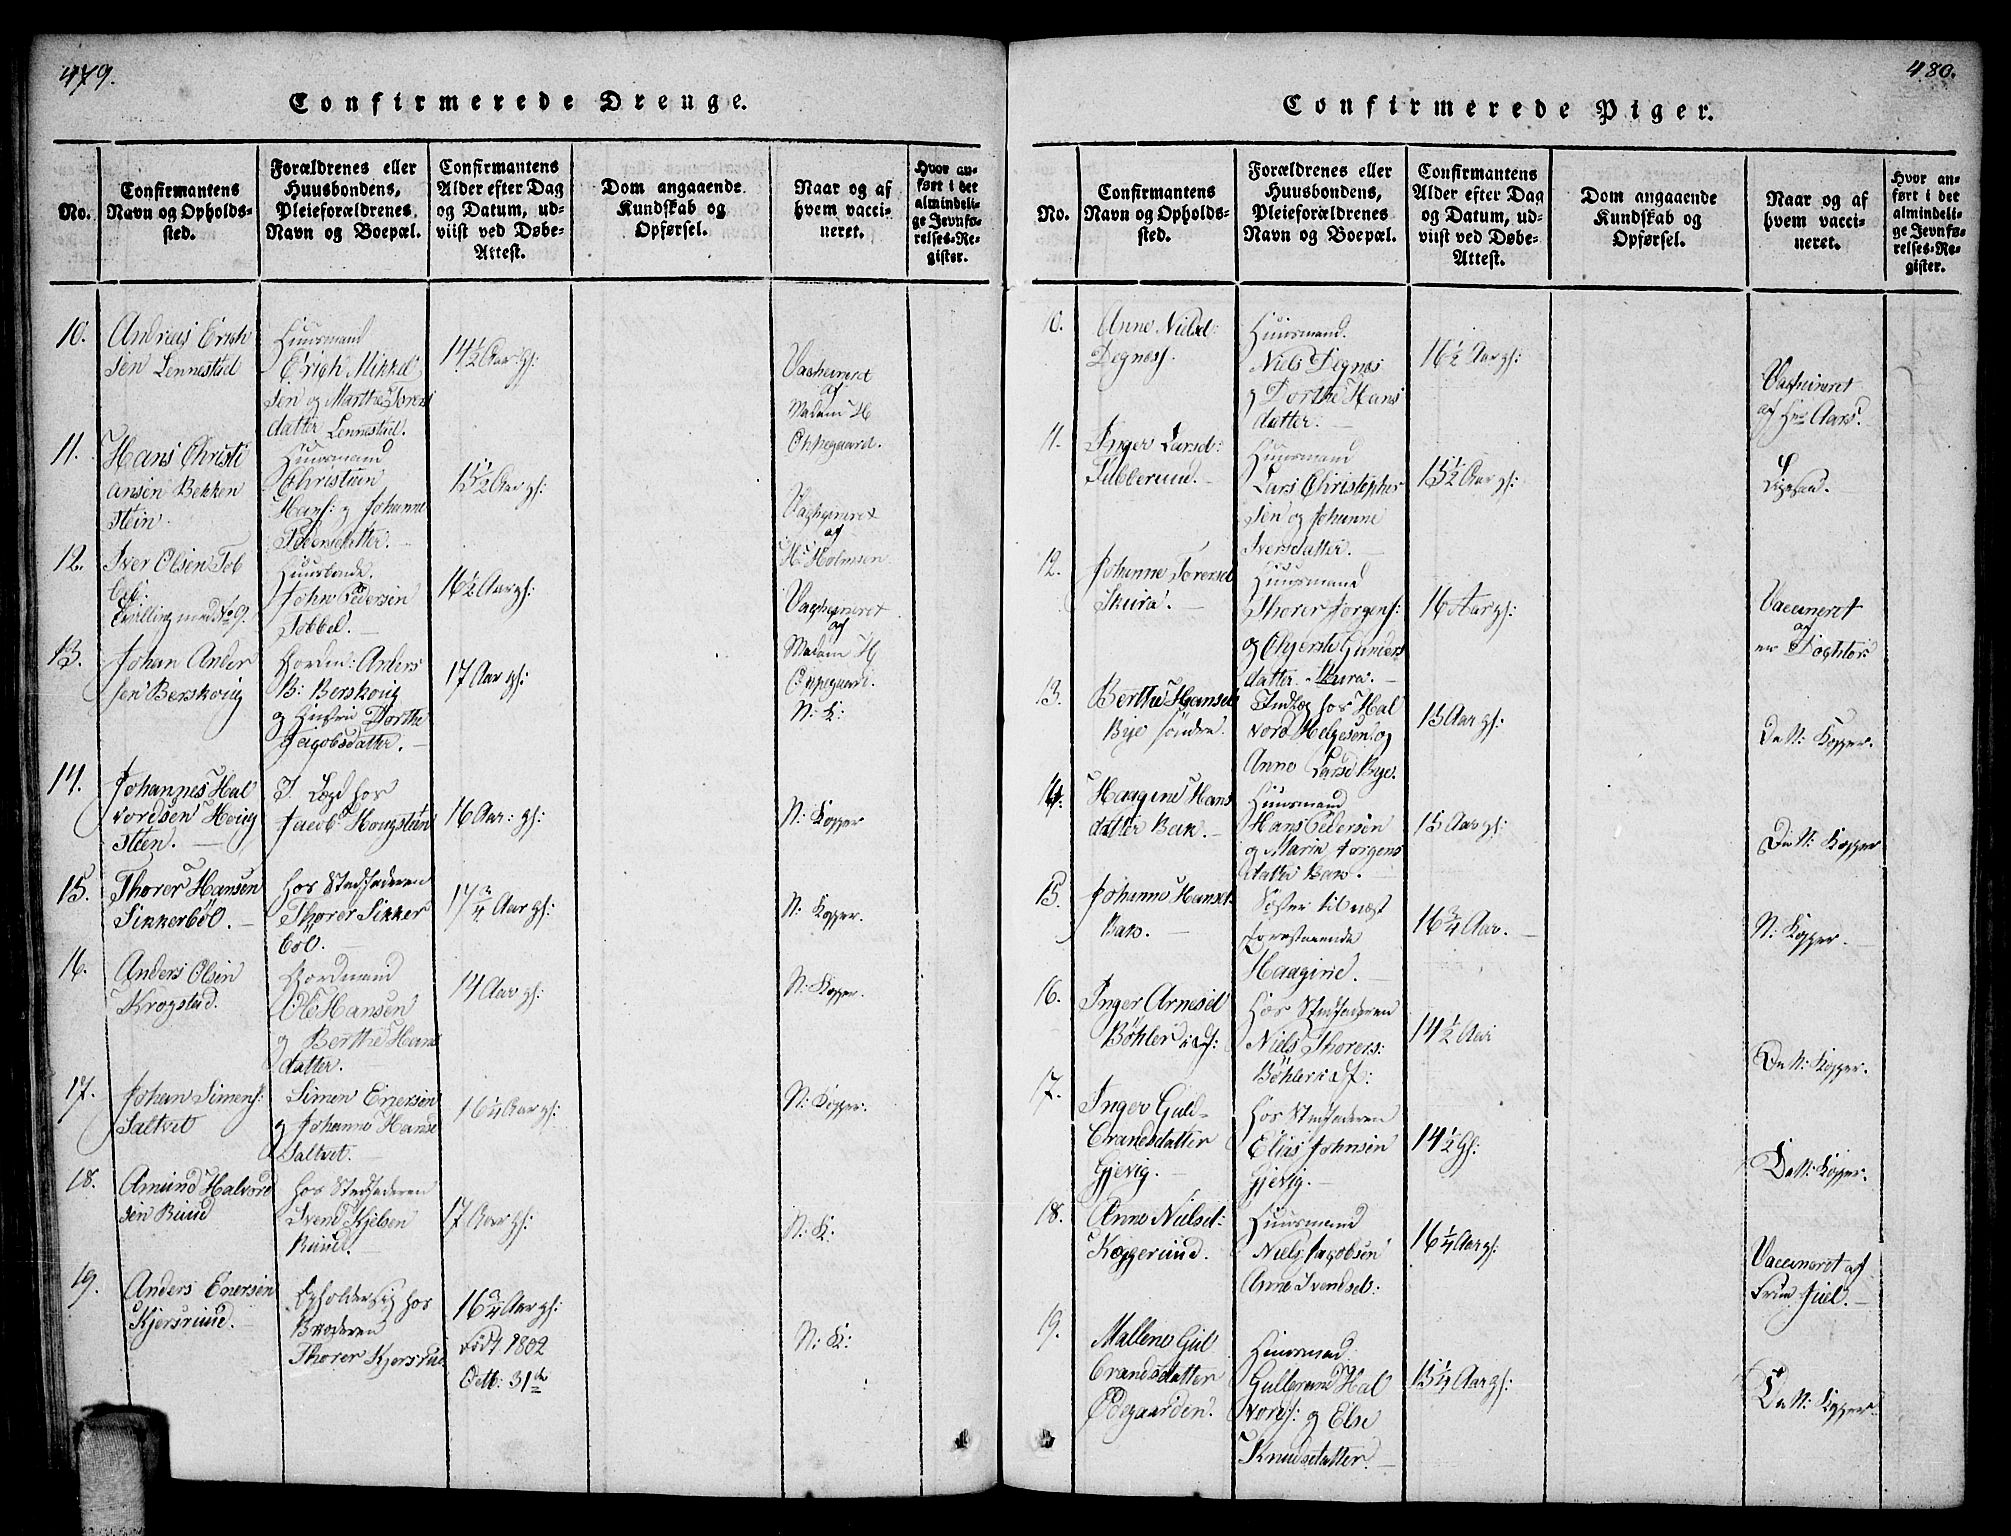 479.
Confirmerede Drenge.
No.
Confirmantens
Navn og Opholds-
sted.
Forældrenes eller
Huusbondens,
Pleieforældrenes
Navn og Boepæl.
Confirmantens
Alder efter Dag
og Datum, ud-
viist ved Døbe-
Attest.
Dom angaaende
Kundskab og
Opførsel.
Naar og af
hvem vacci-
neret.
Hvor an-
ført i det
almindeli-
ge Jevnfø-
relses-Re-
gister.
10.
Andreas Erich
sen Lennestad
Huusmand
Erich Mikkel
sen og Marthe Tores
datter Lennestad.
14½ Aar gl:
Vaghsineret
af
Madam H
Oppegaard.
11.
Hans Christi
ansen Bekken
stein.
Huusmand
Christian
Hans: og Johanne
Pedersdatter.
15½ Aar gl:
Vaghsineret
af
Hr Holmsen
12.
Iver Olsen Tob
bel:
Tvilling med No 9.
Huusbonde.
John Pedersen
Tobbel.
16½ Aar gl:
Vaghsineret
af
Madam H
Oppegaard.
13.
Johan Ander
sen Berskoug
Gorden: Anders
B: Berskoug
og Hustru Dorthe
Jagobsdatter.
17 Aar gl:
N: K:
14.
Johannes Hal
vordsen Houg
steen.
I Lægd hos
Jacob Hougsteen
16 Aar: gl:
N: Kopper
15.
Thorer Hansen
Sikkerböl.
hos Stedfaderen
Thorer Sikker
böl.
17¾ Aar gl:
N: Kopper.
16.
Anders Olsen
Krogstad.
Gordmand
Ole Hansen
og Berthe Hans
datter.
14 Aar gl:
N: Kopper.
17.
Johan Simens:
Saltvet
Simen Enersen
og Johanne Hansd
Saltvet.
16¼ Aar gl:
N: Kopper.
18.
Amund Halvord
sen Ruud
hos Stedfaderen
Svend Kjelsen
Ruud.
17 Aar gl:
N: K:
19.
Anders Enersen
Kjersrud.
Opholder sig hos
Broderen
Thorer Kjersrud
16¾ Aar gl:
Född 1802
Octb: 31de
N: K:
480.
Confirmerede Piger.
No.
Confirmantens
Navn og Opholds-
sted.
Forældrenes eller
Huusbondens,
Pleieforældrenes
Navn og Boepæl.
Confirmantens
Alder efter Dag
og Datum, ud-
viist ved Døbe-
Attest.
Dom angaaende
Kundskab og
Opførsel.
Naar og af
hvem vacci-
neret.
Hvor an-
ført i det
almindeli-
ge Jevnfø-
relses-Re-
gister.
10.
Anne Nielsd:
Degnes.
Huusmand.
Niels Degnes
og Dorthe Hans
datter.
16½ Aar gl:
Vaghsineret
af Hr Aars.
11.
Inger Larsd:
Tubberud.
Huusmand
Lars Christopher
sen og Johanne
Iversdatter.
15½ Aar gl:
Ligesaa.
12.
Johanne Torersd
Skura.
Huusmand
Thorer Jorgens:
og Chjersti Gunders
datter Skura.
16 Aar gl:
Vaccineret
af
en Dogktor:
13.
Berthe Hansd
Bye söndre.
Indlæg hos Hal
vord Helgesen og
Anne Larsd Bye.
15 Aar gl:
De N: Kopper.
14.
Haagine Hans
datter Bak.
Huusmand
Hans Pedersen
og Marie Jorgens
datter Bak.
15 Aar gl:
De N: Kopper
15.
Johanne Hansd.
Bak.
Söster til næst
forestaaende
Haagine.
16¾ Aar.
N: Kopper.
16.
Inger Arnesd
Böhler
Hos Stedfaderen
Niels Thorers:
Böhler
14½ Aar
De N: Kopper.
17.
Inger Guld-
brandsdatter
Gjevig.
hos Stedfaderen
Elias Johnsen
Gjevig.
14½ Gl:
De N: Kopper.
18.
Anne Nielsd:
Koggerud.
Huusmand
Niels Jagobsen
Anne Svendsd:
16¼ Aar gl:
Vaccineret af
Frue Juel.
19.
Mallene Gul
brandsdatter
Ödegaarden.
Huusmand
Gulbrand Hal
vors: og Else
Knudsdatter.
15¼ Aar gl:
De N: Kopper.